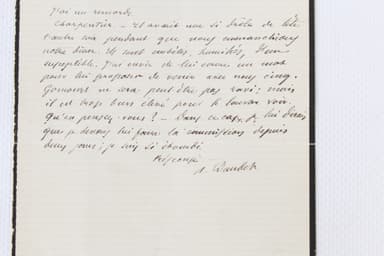 J'ai un remords
Charpentier - Il avait une si drôle de tête
l'autre soir pendant que nous mananchions
notre dîner. Ils sont embêtés, humiliés, d'une
susceptible. J'ai envie de lui écrire un mot
pour lui proposer de venir avec nous cinq.
Goncourt ne sera peut être pas ravi; mais
il est trop bien élevé pour le laisser voir.
Qu'en pensez vous? - Dans ce cas, je lui dirais
que je devais lui faire la commission depuis
deux jours; je suis si étourdi.
Réponse
A. Daudet